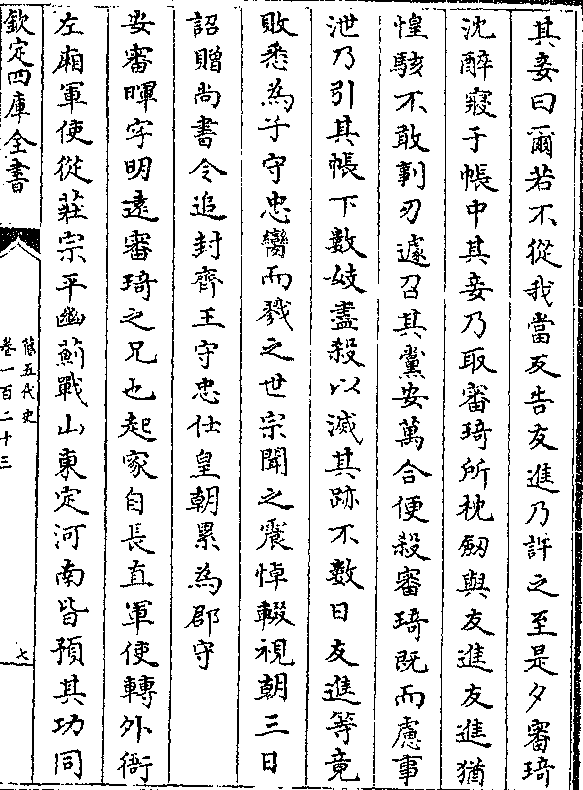 其妾曰爾若不從我當反告友進乃許之至是夕審琦
沈醉寢于帳中其妾乃取審琦所枕劒與友進友進猶
惶駭不敢剚刃遽召其黨安萬合便殺審琦既而慮事
泄乃引其帳下數妓盡殺以滅其跡不數日友進等竟
敗悉為子守忠臠而戮之世宗聞之震悼輟視朝三日
詔贈尚書令追封齊王守忠仕皇朝累為郡守
安審暉字明遠審琦之兄也起家自長直軍使轉外衙
左廂軍使從莊宗平幽薊戰山東定河南皆預其功同
欽定四庫全書
舊五代史
卷一百二十三
七